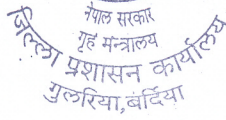 नेपाल सरकार
गृह मन्त्रालय
जिल्ला प्रशासन कार्यालय
गुलरिया,बर्दिया